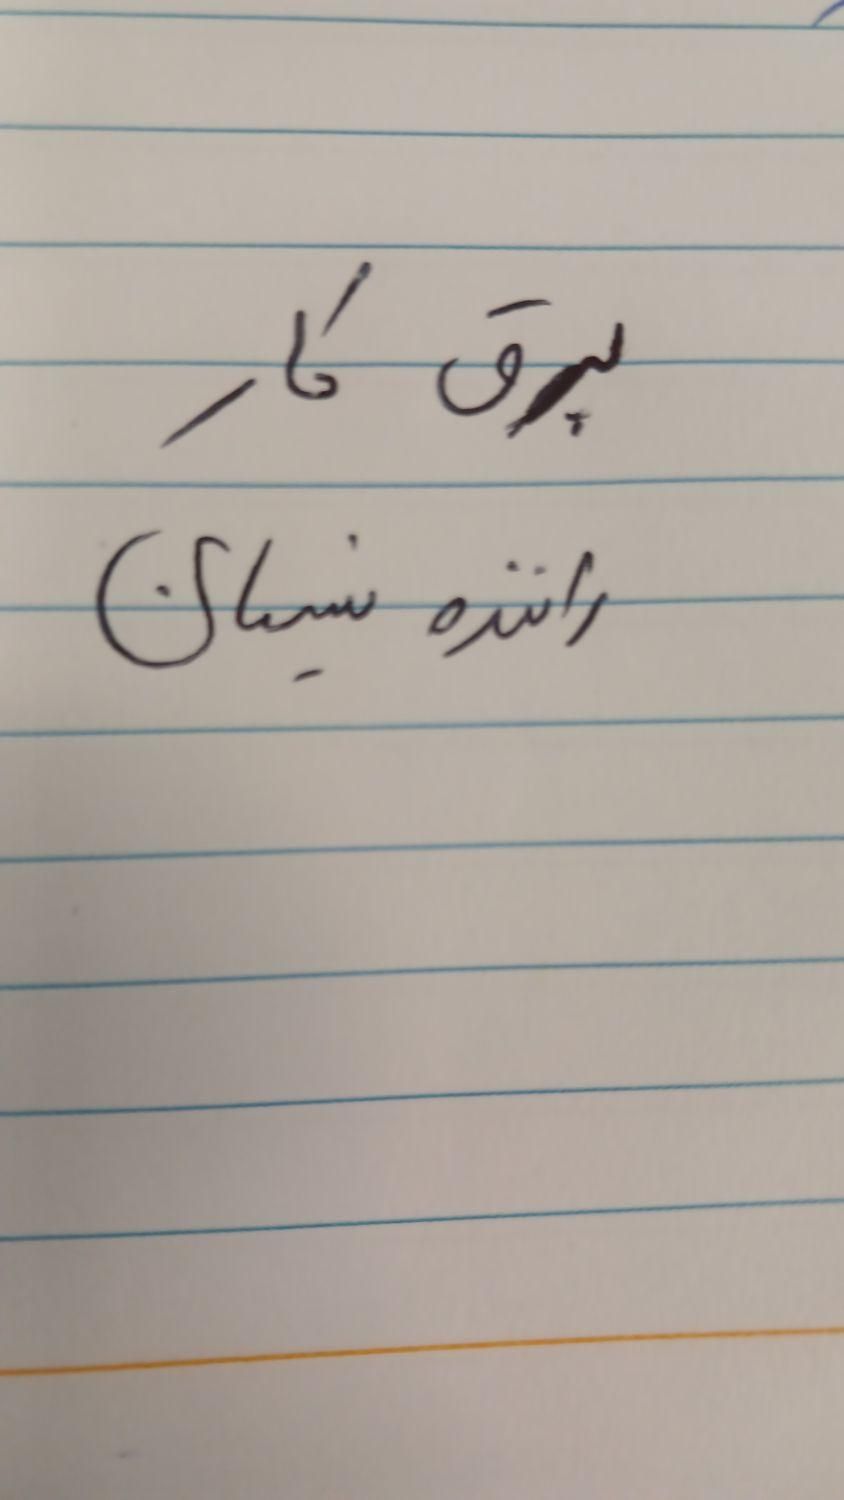 برق کار
راننده نیسان